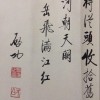 待從頭收拾舊
河朝天闕
岳飛滿江紅
啟功